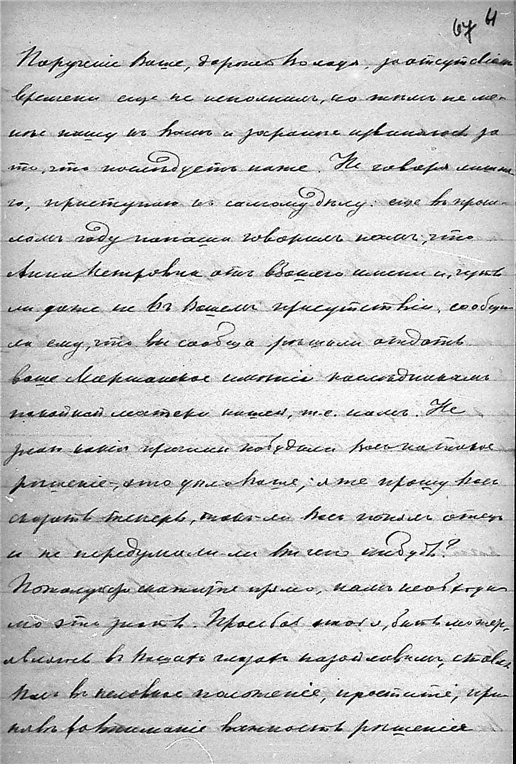 67 4
Порученіе Ваше, дорогой Володя, за отсутствіемъ
времени еще не исполнилъ, но тѣмъ не ме-
нѣе пишу къ Вамъ и заранѣе извиняюсь за
то, что послѣдуетъ ниже. Не говоря лишня-
го, приступаю къ самому дѣлу: еще въ прош-
ломъ году папаша говорилъ намъ, что
Анна Петровна отъ Вашего имени и, чуть
ли даже не въ Вашемъ присутствіи, сообщи-
ла ему, что вы сообща рѣшили отдать
ваше имѣніе наслѣдникамъ
покойной матери нашей, т.е. намъ. Не
знаю какія причины побудили Васъ на такое
рѣшеніе, это дѣло Ваше; я же прошу Васъ
сказать теперь, такъ-ли Васъ понялъ отецъ
и не передумали ли Вы чего нибудь?
Пожалуйста скажите прямо, намъ необходи-
мо это знать. Просьба моя, быть можетъ,
въ Вашихъ глазахъ ставитъ
Васъ въ неловкое положеніе, простите, при-
нявъ во вниманіе важность рѣшенія